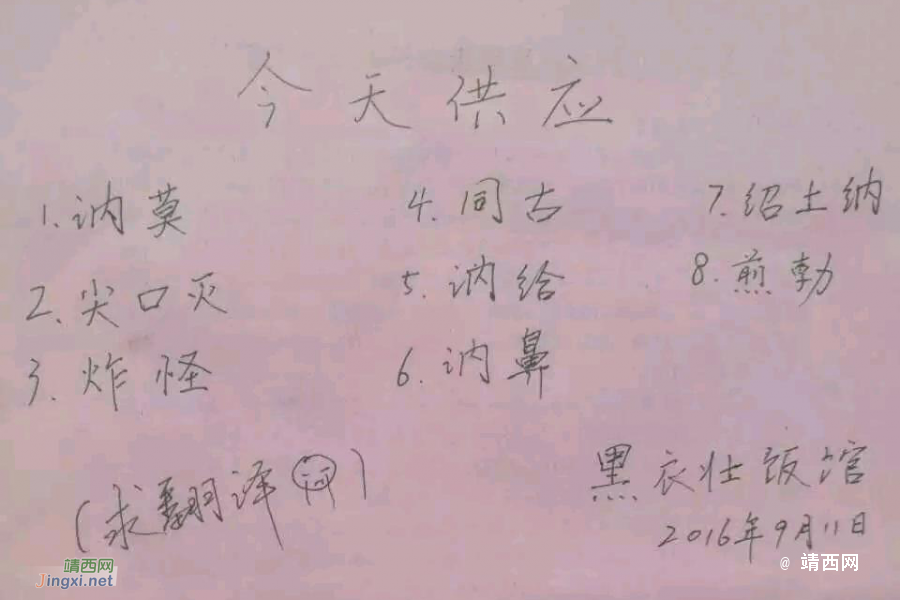 今天供应
1.讷莫
2.尖口灭
3.炸怪
4.同古
5.讷给
6.讷鼻
7.绍土纳
8.煎勃
(求翻译)
黑衣壮饭馆
2016年9月11日
靖西网
Jingxi.net
@ 靖西网